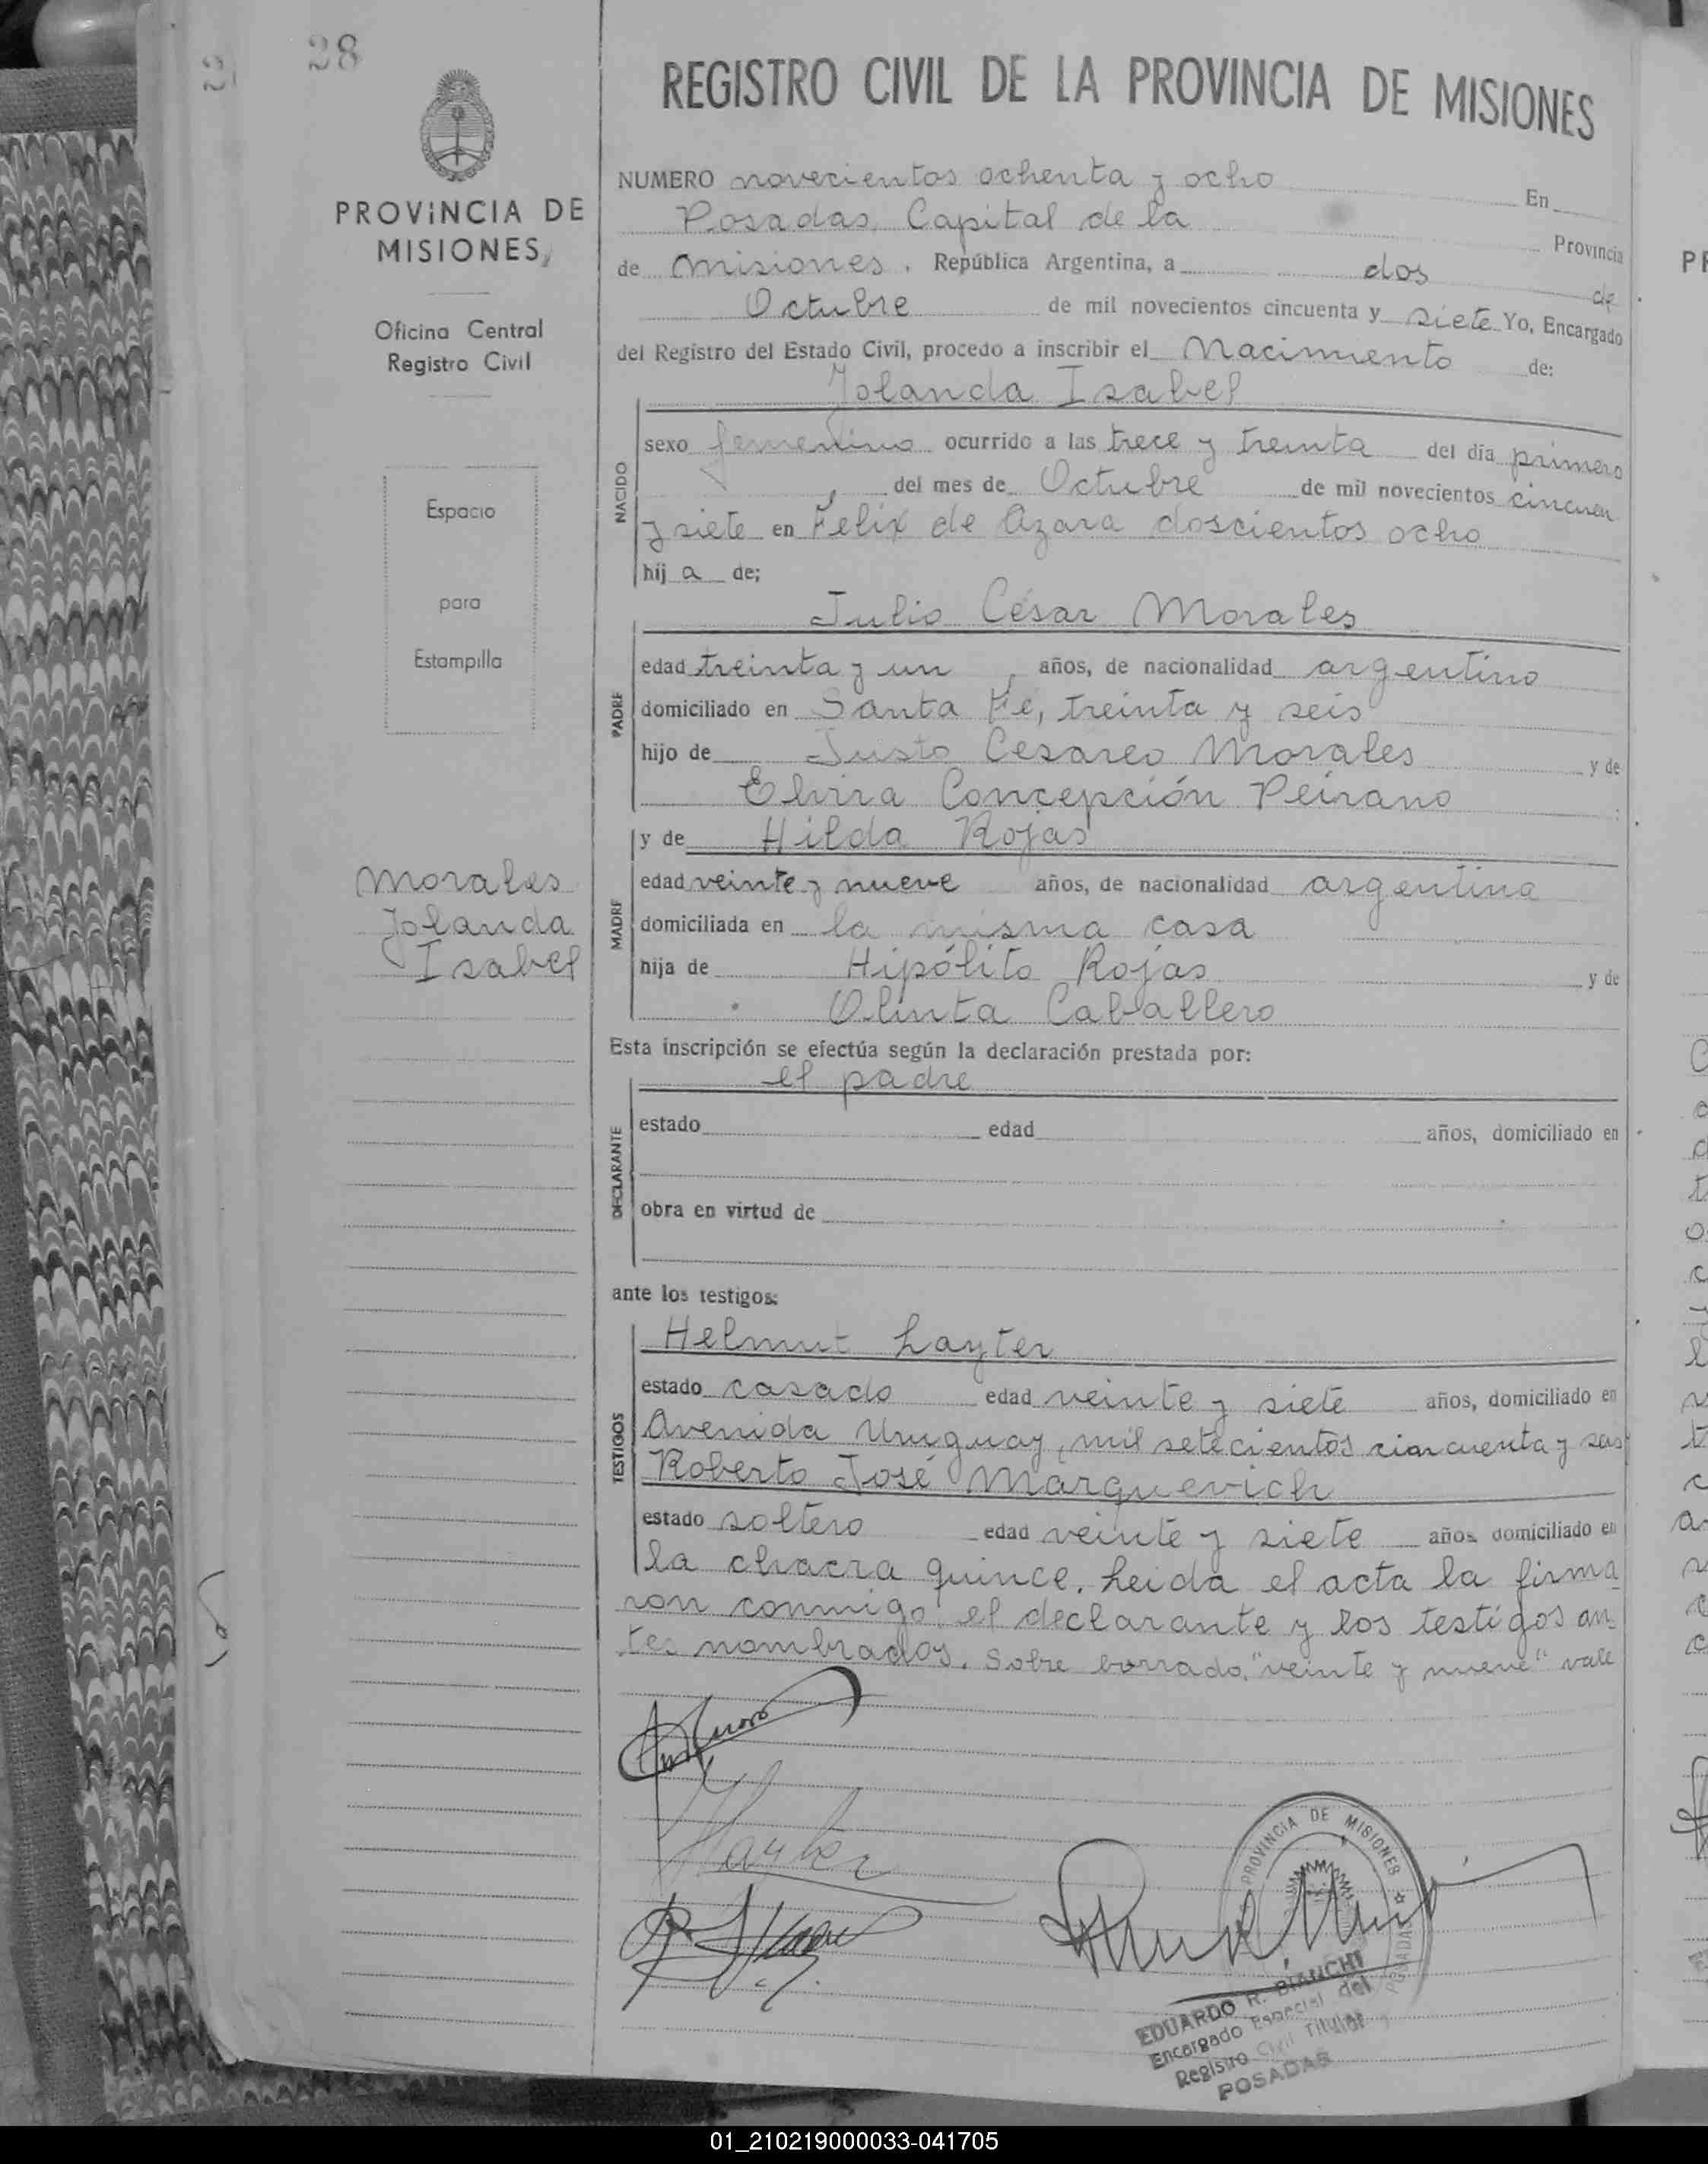 28
PROVINCIA DE
MISIONES
Oficina Central
Registro Civil
Espacio
para
Estampilla
Morales
Yolanda
Isabel
REGISTRO CIVIL DE LA PROVINCIA DE MISIONES
NUMERO novecientos ochenta y ocho En
Posadas, Capital de la Provincia
de Misiones, República Argentina, a dos de
Octubre de mil novecientos cincuenta y siete Yo, Encargado
del Registro del Estado Civil, procedo a inscribir el Nacimiento de:
Yolanda Isabel
NACIDO
sexo femenino ocurrido a las trece y treinta del día primero
del mes de Octubre de mil novecientos cincuen
y siete en Félix de Azara doscientos ocho
hij a de;
Julio César Morales
PADRE
edad treinta y un años, de nacionalidad argentino
domiciliado en Santa Fé, treinta y seis
hijo de Justo Cesareo Morales y de
Elvira Concepción Peirano
y de Hilda Rojas
MADRE
edad veinte y nueve años, de nacionalidad argentina
domiciliada en la misma casa
hija de Hipólito Rojas y de
Olinta Caballero
Esta inscripción se efectúa según la declaración prestada por:
el padre
DECLARANTE
estado edad años, domiciliado en
obra en virtud de
ante los testigos:
Helmut Layter
TESTIGOS
estado casado edad veinte y siete años, domiciliado en
Avenida Uruguay, mil setecientos cincuenta y seis
Roberto José Marquevich
estado soltero edad veinte y siete años domiciliado en
la chacra quince. Leida el acta la firma
ron conmigo el declarante y los testigos an-
tes nombrados. Sobre borrado: "veinte y nueve" vale
PROVINCIA DE MISIONES
POSADAS
EDUARDO R. BIANCHI
Encargado Especial del
Registro Civil Titular
POSADAS
01_210219000033-041705